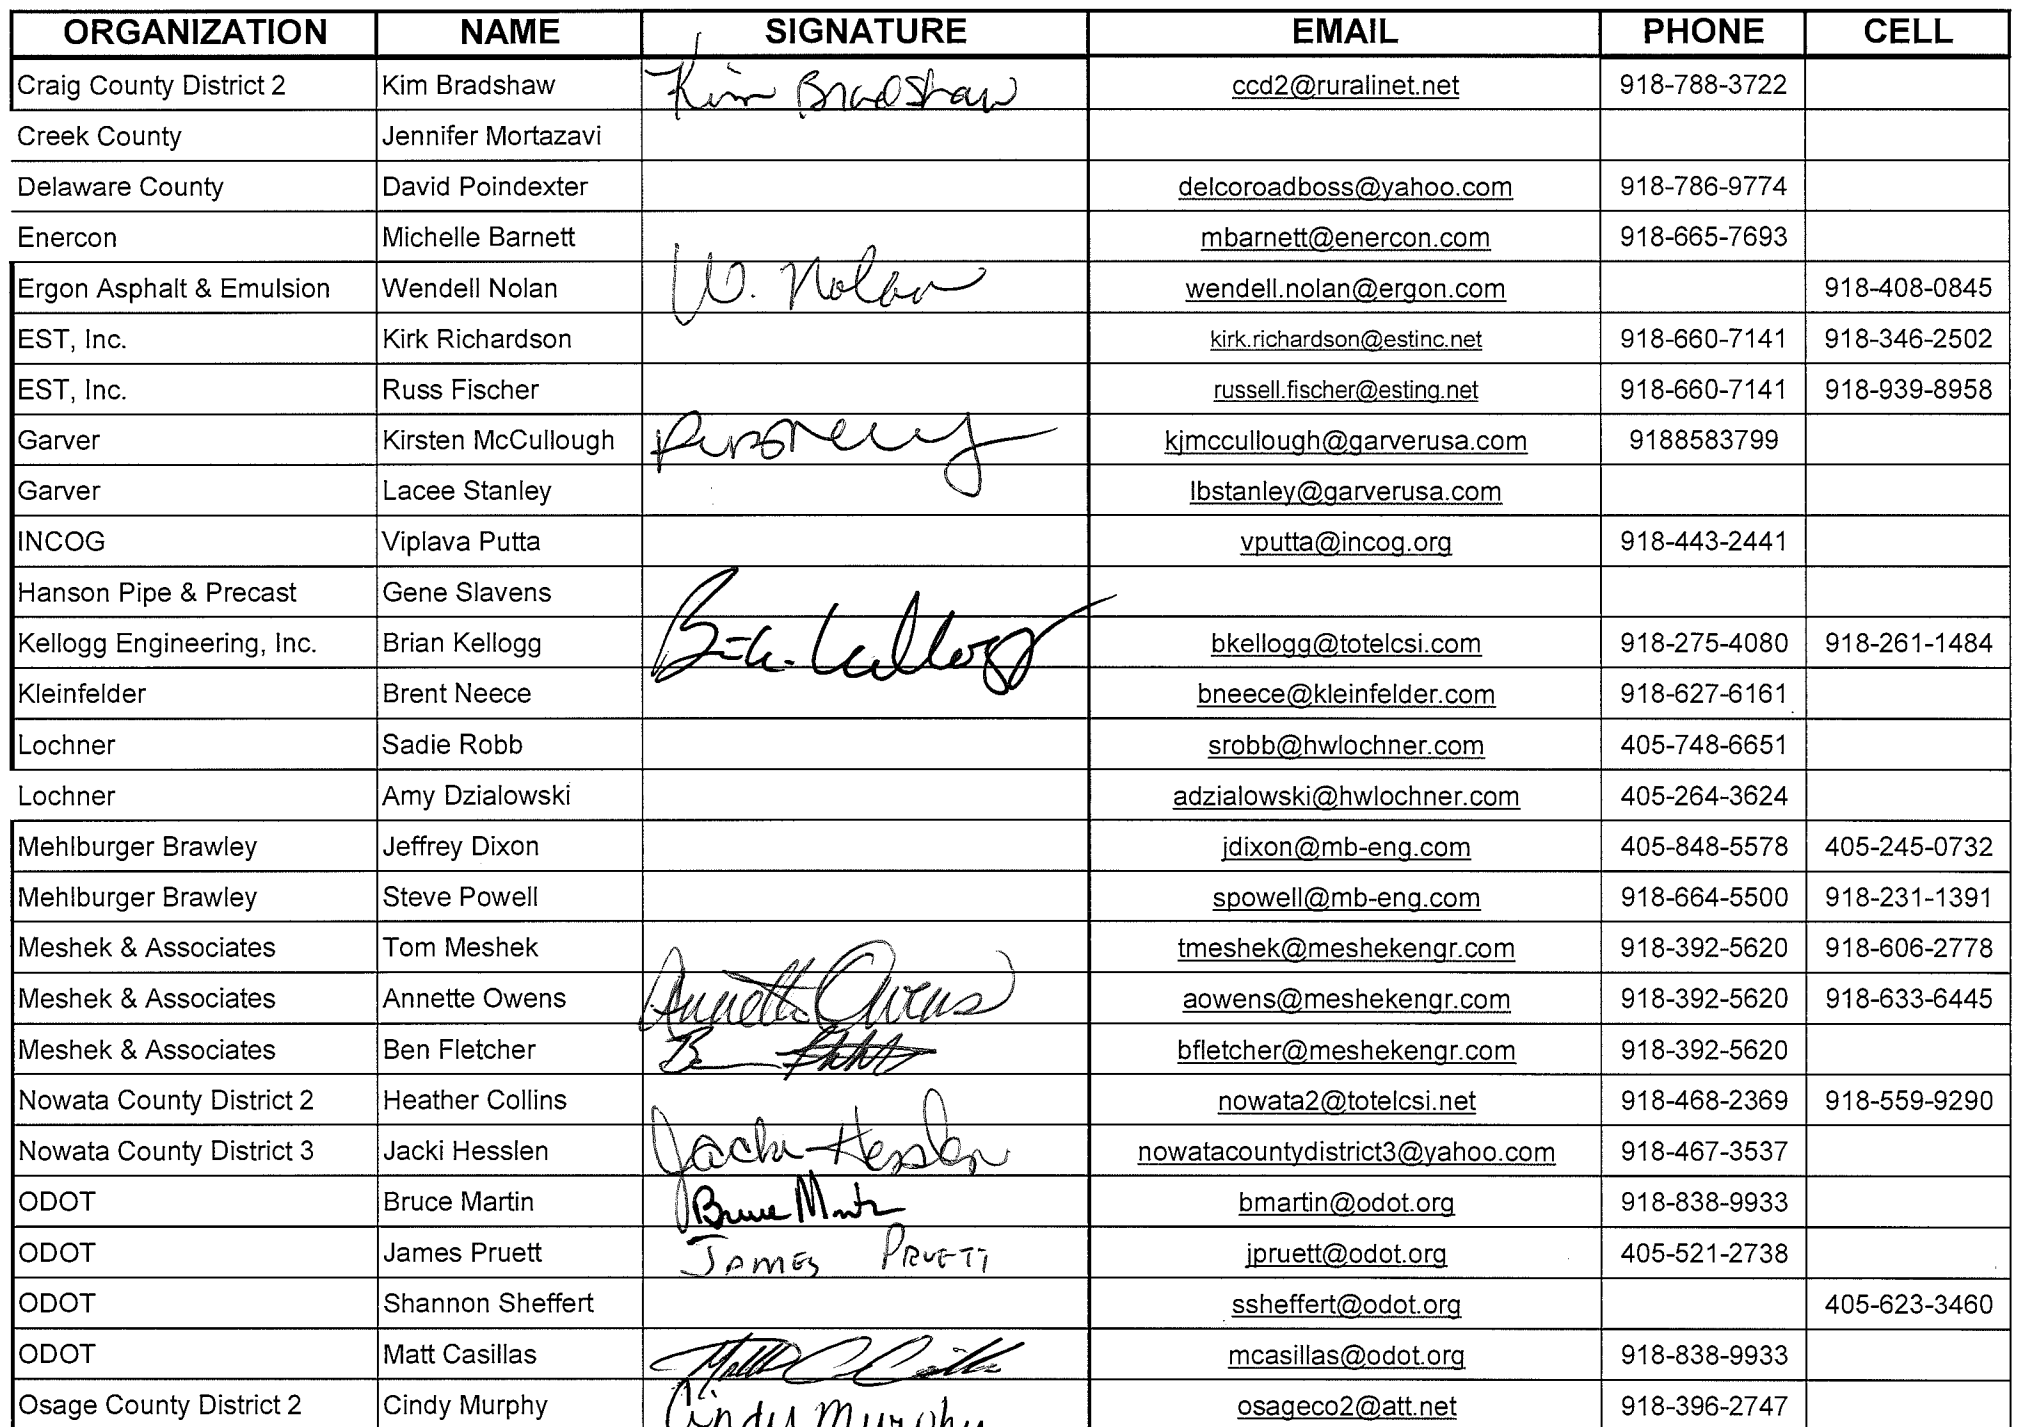 ORGANIZATION NAME SIGNATURE EMAIL PHONE CELL
Craig County District 2 Kim Bradshaw Kim Bradshaw ccd2@ruralinet.net 918-788-3722
Creek County Jennifer Mortazavi
Delaware County David Poindexter delcoroadboss@yahoo.com 918-786-9774
Enercon Michelle Barnett mbarnett@enercon.com 918-665-7693
Ergon Asphalt & Emulsion Wendell Nolan W. Nolan wendell.nolan@ergon.com 918-408-0845
EST, Inc. Kirk Richardson kirk.richardson@estinc.net 918-660-7141 918-346-2502
EST, Inc. Russ Fischer russell.fischer@esting.net 918-660-7141 918-939-8958
Garver Kirsten McCullough kjmccullough@garverusa.com 9188583799
Garver Lacee Stanley lbstanley@garverusa.com
INCOG Viplava Putta vputta@incog.org 918-443-2441
Hanson Pipe & Precast Gene Slavens
Kellogg Engineering, Inc. Brian Kellogg Brian Kellogg bkellogg@totelcsi.com 918-275-4080 918-261-1484
Kleinfelder Brent Neece bneece@kleinfelder.com 918-627-6161
Lochner Sadie Robb srobb@hwlochner.com 405-748-6651
Lochner Amy Dzialowski adzialowski@hwlochner.com 405-264-3624
Mehlburger Brawley Jeffrey Dixon jdixon@mb-eng.com 405-848-5578 405-245-0732
Mehlburger Brawley Steve Powell spowell@mb-eng.com 918-664-5500 918-231-1391
Meshek & Associates Tom Meshek tmeshek@meshekengr.com 918-392-5620 918-606-2778
Meshek & Associates Annette Owens Annette Owens aowens@meshekengr.com 918-392-5620 918-633-6445
Meshek & Associates Ben Fletcher bfletcher@meshekengr.com 918-392-5620
Nowata County District 2 Heather Collins nowata2@totelcsi.net 918-468-2369 918-559-9290
Nowata County District 3 Jacki Hesslen Jacki Hesslen nowatacountydistrict3@yahoo.com 918-467-3537
ODOT Bruce Martin Bruce Martin bmartin@odot.org 918-838-9933
ODOT James Pruett JAMES PRUETT jpruett@odot.org 405-521-2738
ODOT Shannon Sheffert ssheffert@odot.org 405-623-3460
ODOT Matt Casillas Matt C Casillas mcasillas@odot.org 918-838-9933
Osage County District 2 Cindy Murphy Cindy Murphy osageco2@att.net 918-396-2747